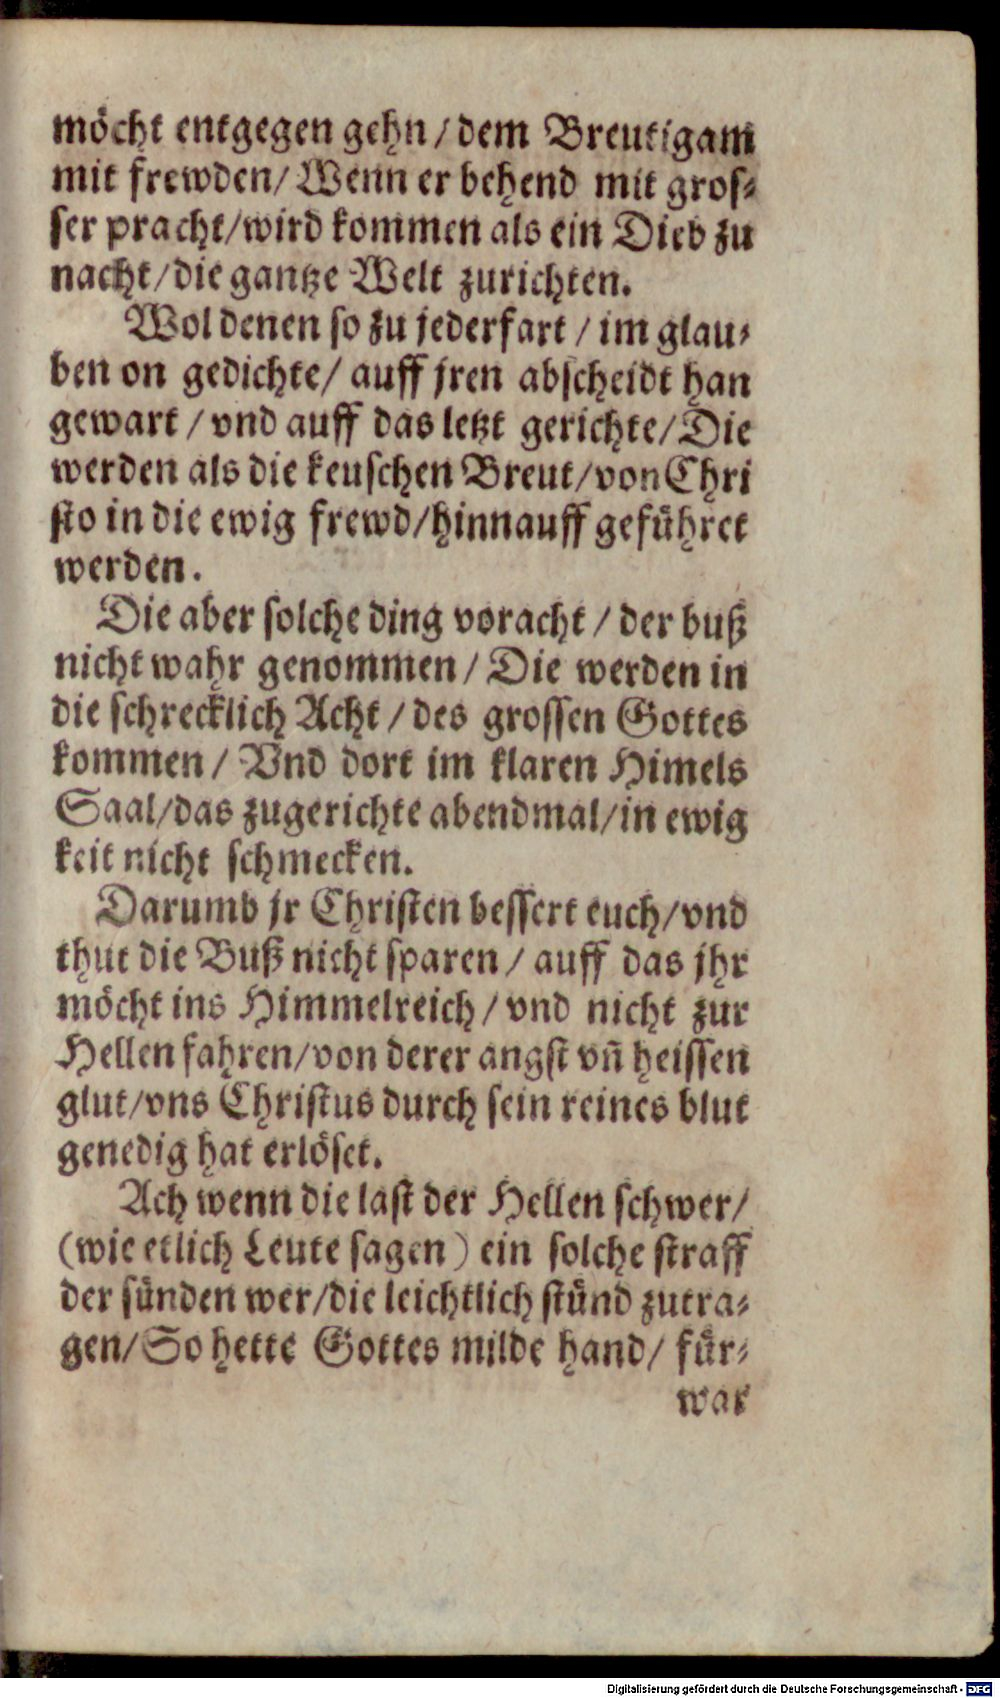 möcht entgegen gehn / dem Breutigam
mit frewden / Wenn er behend mit gros⸗
ser pracht / wird kommen als ein Dieb zu
nacht / die gantze Welt zurichten.
Wol denen so zu jederfart / im glau⸗
ben on gedichte / auff jren abscheidt han
gewart / vnd auff das letzt gerichte / Die
werden als die keuschen Breut / von Chri
sto in die ewig frewd / hinnauff geführet
werden.
Die aber solche ding voracht / der buß
nicht wahr genommen / Die werden in
die schrecklich Acht / des grossen Gottes
kommen / Vnd dort im klaren Himels
Saal / das zugerichte abendmal / in ewig
keit nicht schmecken.
Darumb jr Christen bessert euch / vnd
thut die Buß nicht sparen / auff das jhr
möcht ins Himmelreich / vnd nicht zur
Hellen fahren / von derer angst vñ heissen
glut / vns Christus durch sein reines blut
genedig hat erlöset.
Ach wenn die last der Hellen schwer /
(wie etlich Leute sagen) ein solche straff
der sünden wer / die leichtlich stünd zutra⸗
gen / So hette Gottes milde hand / für⸗
war
Digitalisierung gefördert durch die Deutsche Forschungsgemeinschaft - DFG